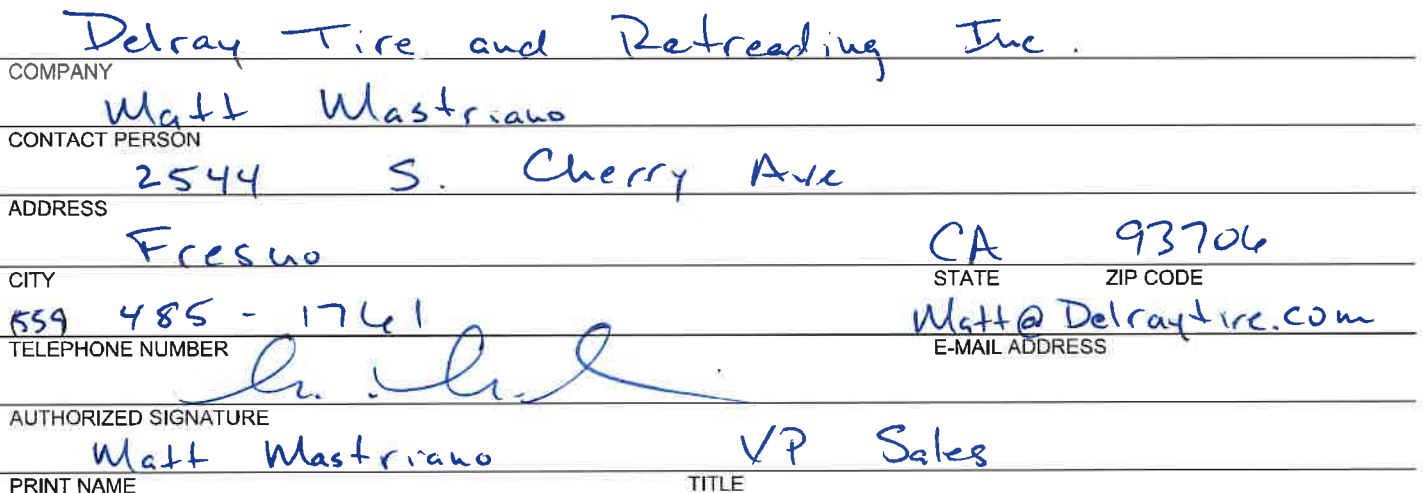 Delray Tire and Retreading Inc.
COMPANY
Matt Mastriano
CONTACT PERSON
2544 S. Cherry Ave
ADDRESS
Fresno CA 93706
CITY STATE ZIP CODE
(559 485 - 1761 Matt@Delraytire.com
TELEPHONE NUMBER E-MAIL ADDRESS
AUTHORIZED SIGNATURE
Matt Mastriano VP Sales
PRINT NAME TITLE